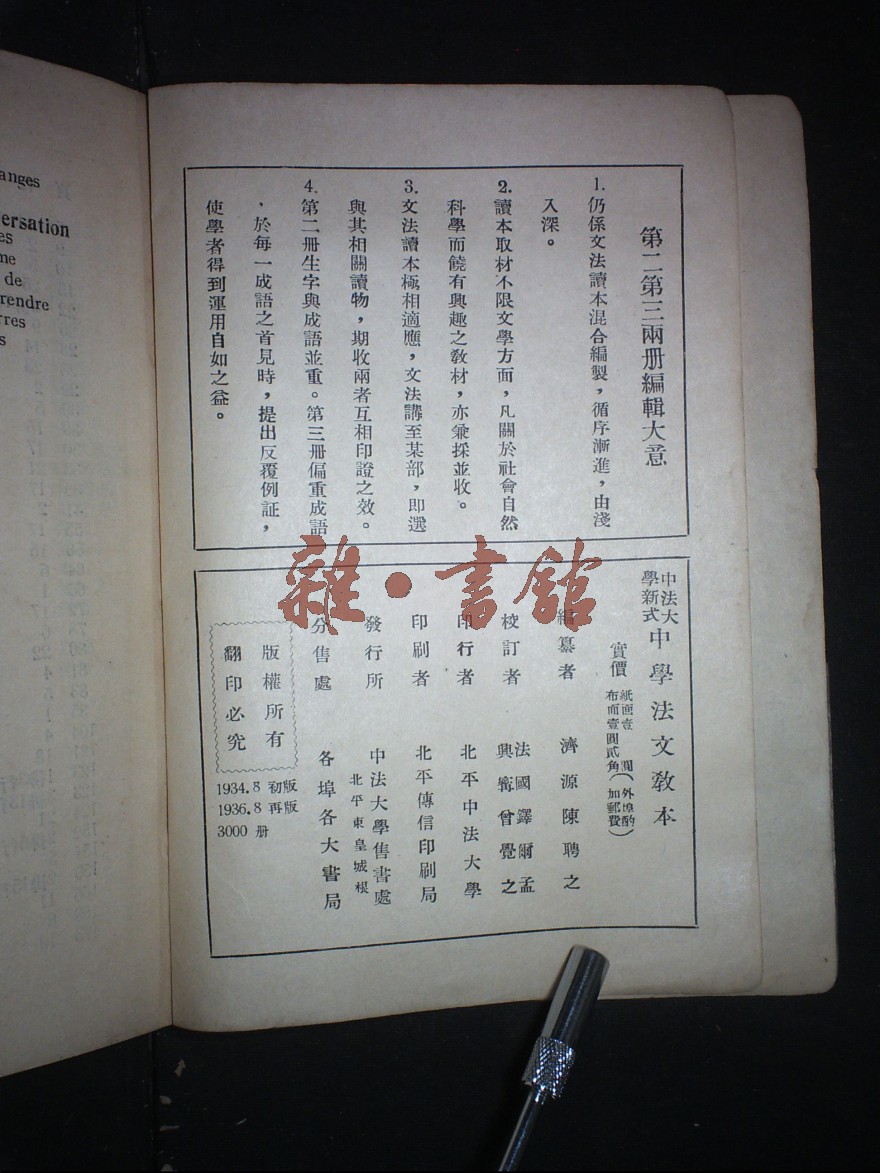 anges
ersation
es
me
de
rendre
rres
s
第二第三兩册編輯大意
1. 仍係文法讀本混合編製，循序漸進，由淺
入深。
2. 讀本取材不限文學方面，凡關於社會自然
科學而饒有興趣之教材，亦兼採並收。
3. 文法讀本極相適應，文法講至某部，即選
與其相關讀物，期收兩者互相印證之效。
4. 第二册生字與成語並重。第三册偏重成語
，於每一成語之首見時，提出反覆例証，
使學者得到運用自如之益。
雜·書館
中法大
學新式
中學法文教本
實價
紙面壹圓
布面壹圓貳角
(外埠酌
加郵費)
編纂者 濟源陳聘之
校訂者 法國鐸爾孟
興寗曾覺之
印行者 北平中法大學
印刷者 北平傳信印刷局
發行所 中法大學售書處
北平東皇城根
分售處 各埠各大書局
版權所有
翻印必究
1934.8 初版
1936.8 再版
3000 册